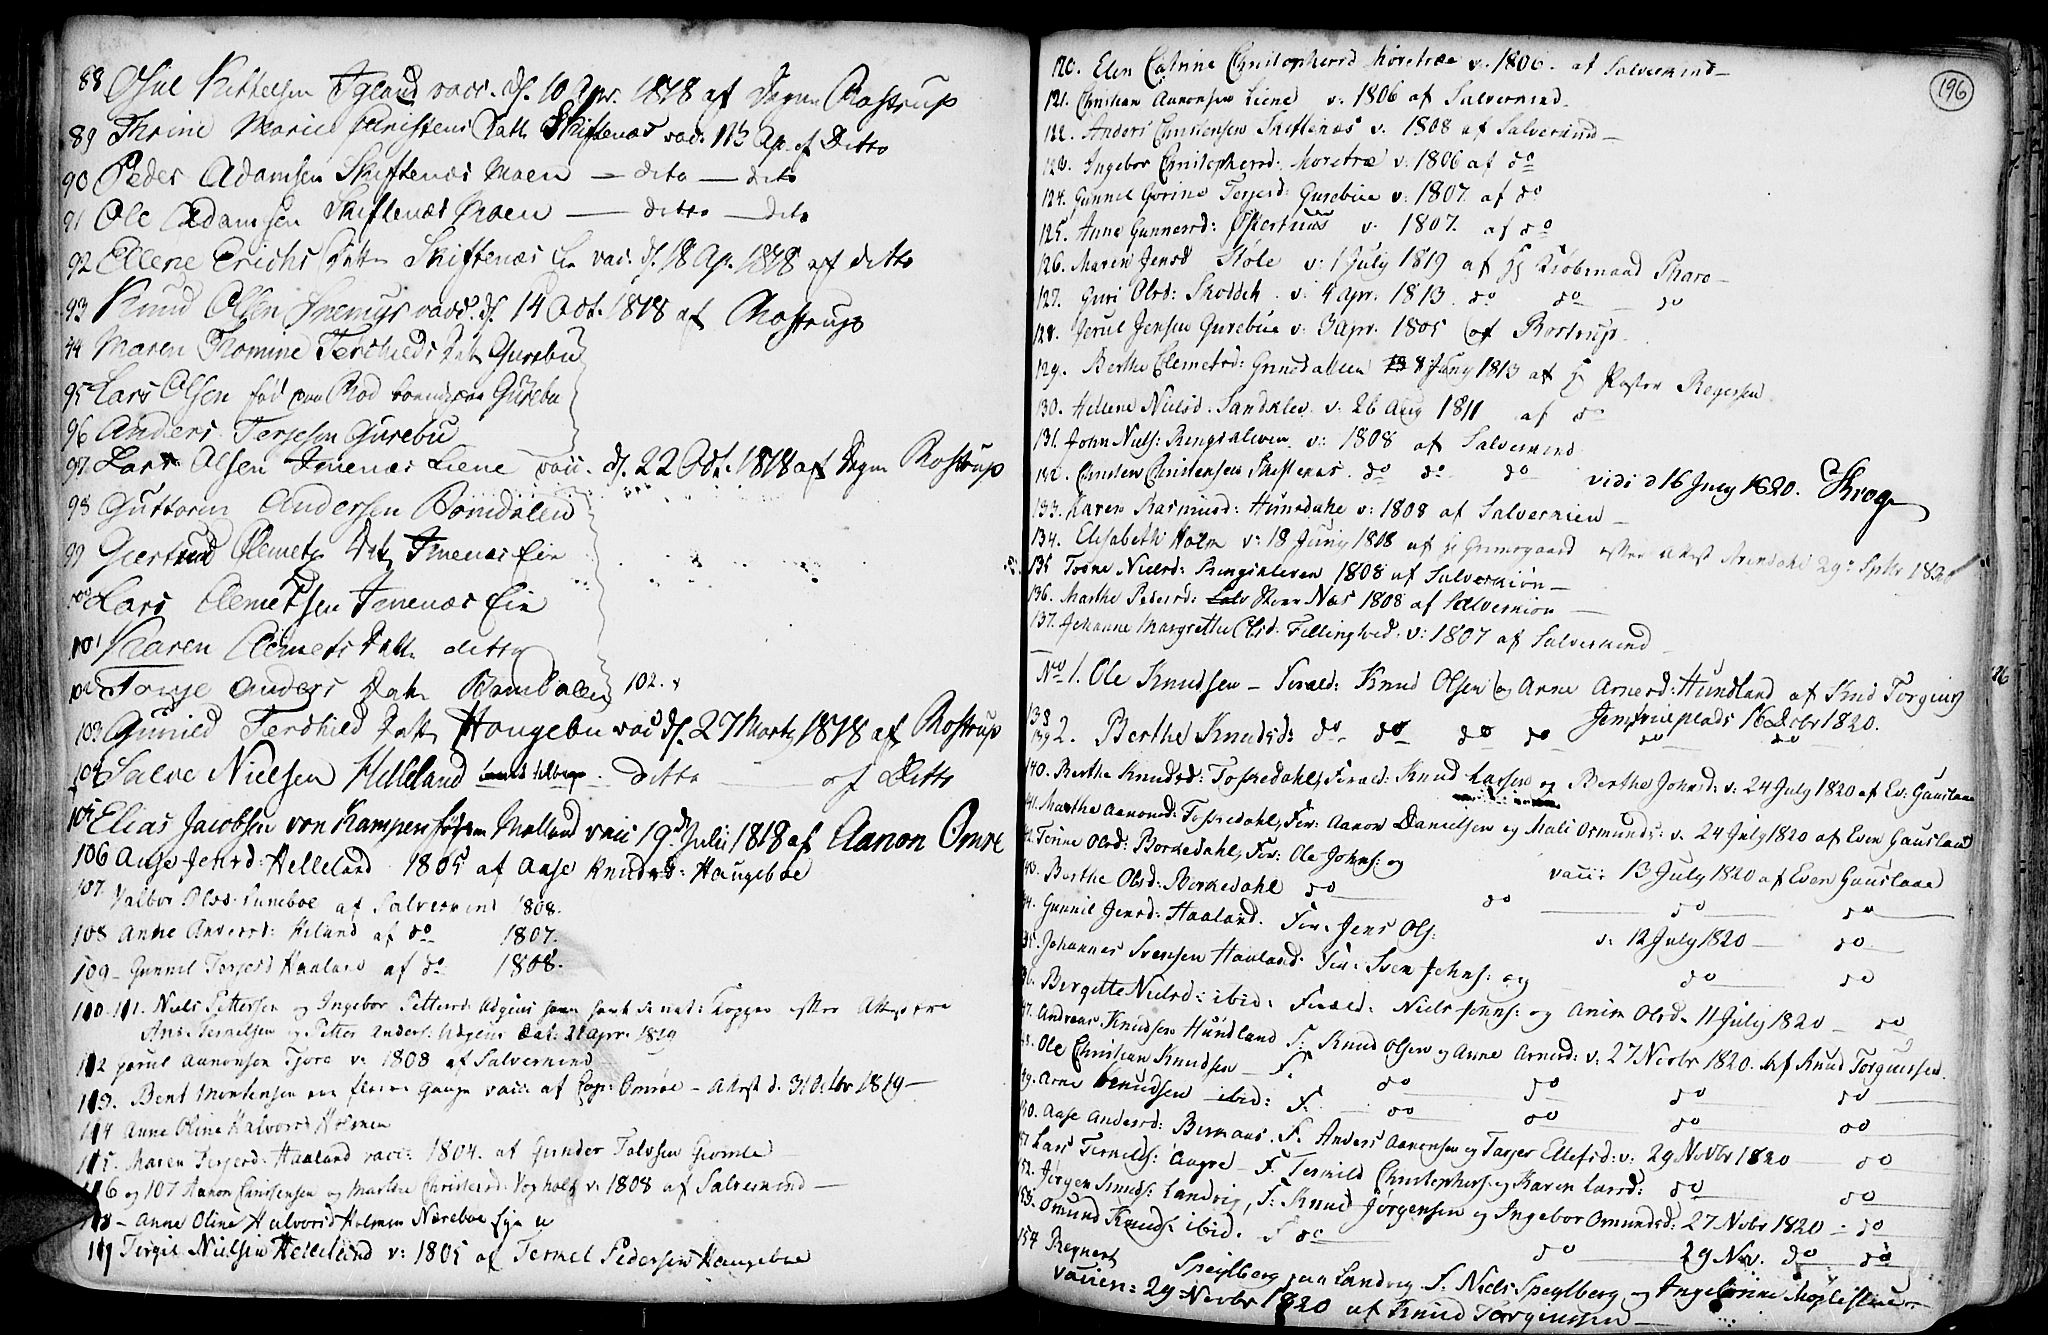 88 Osul Kittelsen Igland vacc. d. 10 Apr. 1818 af Rostrup
89 Thrine Marie Christens Datt Skiftenæs vac. Ap. af Ditto
90 Peder Adamsen Skiftenæs Moen — dito — dito
91 Ole Adamsen Skiftenæs Moen — ditto — dito
92 Ellene Erichs Datter Skiftenæs Eie vac. d. 18 Ap. 1818 af ditto
93 Knud Olsen vacc. d. 14 Oct. 1818 af Rostrup
94 Maren Thomine Terchields Dat Gurebu
95 Lars Olsen fød paa Gurebu
96 Anders Terjesen Gurebu
97 Lars Olsen Imenæs Liene vacc. d. 22 Oct. 1818 af Rostrup
98 Guttorm Andersen Bomdalen
99 Giertrud Clemets Dat Imenæs Eie
100 Lars Clemetsen Imenæs Eie
101 Karen Clemets Datt ditto
102 Tonje Anders Datr Bomdalen 102.
103 Gunild Terchield Datt Haugebu vac d. 27 Marts 1818 af Rostrup
104 Salve Nielsen Helleland ditto — af Ditto
105 Elias Jacobsen von Kampen Molland vacc 19 d Julii 1818 af Aanon Omre
106 Aase Jensd: Helleland 1805 af Aase Knudsd: Haugeboe
107. Valbor Olsd: af Salvesend 1808.
108 Anne Andersd: af do 1807.
109 — Gunnil Terjesd Haaland af do 1808.
110. 111. Niels Pettersen og Ingebor Pettersd: Adgius Kopper efter Attest fra
Petter Anders: Adgius Dat: 21 Apr. 1819
112 Jerul Aanonsen Tjore v: 1808 af Salvesend
113. Bent Mortensen vacc. af Omroe — Attest d. 31 Octbr 1819 —
114 Anne Oline Halvorsd Holmen
115. Maren Terjesd: Haaland vacc: 1804. af Gunder Talvsen Gromle
116 og 107 Aanon Christensen og Marthe Christensd: v: 1808 af Salvesend —
118 — Anne Oline Halvorsd Holmen Næreboe
119 Torgil Nielsen Helleland v: 1805 af Terkel Pedersen Haugeboe
196
120. Elen Catrine Christophersd Moretræe v. 1806 — af Salvesend —
121. Christian Aanonsen Liene v: 1806 af Salvesend
122. Anders Christensen Skiftenæs v: 1808 af Salvesend —
123. Ingebor Christophersd: Moretræ v: 1806 af do
124. Gunnel Gorine Terjesd: Gurebue v: 1807. af do
125. Anne Gunnersd: v: 1807. af do
126. Maren Jensd Støle v: 1 July 1819 af Hr Kiøbmand Tharo —
127. Guri Olsd: v: 4 Apr. 1813. do do do
128. Jerul Jensen Gurebue v: 3 Apr. 1805 af Rostrup.
129. Berthe Clemetsd: v: 8 Juny 1813 af Hr Pastor Regersen
130. Hellene Nielsd: Sandklev v: 26 Aug 1811 af do
131. John Niels: Ringskleven v: 1808 af Salvesend
132. Christen Christensen Skiftenes. do do do vidi d 16 July 1820. Krog
133. Karen Rasmusd: v: 1808 af Salvesend —
134. Elisabeth Holm v: 18 Juny 1808 af Hr Grimsgaard efter Attest Arendahl 29de Septbr 183
135 Torine Nielsd: Ringskleven 1808 af Salvesend —
136. Marthe Pedersd: Næs 1808 af Salvesend —
137. Johanne Margrethe Olsd: Fellingtved: v: 1807 af Salvesend —
No 1. Ole Knudsen — Foræld: Knud Olsen og Anne Arnesd: Hundland af Knud Torgius
138 Jenstrieplads 16 Decbr 1820.
139 2. Berthe Knudsd: do do do do do do
140. Berthe Knudsd: Toskedahl, Foræld: Knud Larsen og Berthe Johnsd: v: 24 July 1820 af Ev: Gauslaae
41. Marthe Aanonsd: Toskedahl, For: Aanon Danielsen og Mali Osmunds: v: 24 July 1820 af Even Gauslaae
42. Torine Olsd: Borkedahl, For: Ole Johns: og
43. Berthe Olsd: Borkedahl do do vacc: 13 July 1820 af Even Gauslaae
44. Gunnil Jensd: Haaland. For: Jens Ols: do do
45. Johannes Svensen Haaland. For: Sven Johns: og v: 12 July 1820 — do
46. Bergitte Nielsd: ibid: Foræld: Niels Johns: og Anne Olsd. 11 July 1820 — do
47. Andreas Knudsen Hundland F: Knud Olsen og Anne Arnesd: v: 27 Novbr 1820. af Knud Torgiussen
48. Ole Christian Knudsen — F. do do do do
49. Arne Knudsen — ibid: F. do do do do
150. Aase Andersd: Bermaas. F. Anders Aanonsen og Tarjer Ellefsd: v: 29 Novbr 1820 — do
151 Lars Terkilds: F. Terkild Christophers: og Karen Larsd: do do
152. Jørgen Knuds: Landvig, F: Knud Jørgensen og Ingebor Omundsd: 27 Novbr 1820 — do
153. Omund Knuds: ibid. F do do 29 Nov. do do
154 Regnert Speylberg paa Landvig F. Niels Speylberg og
vaccin: 29 Novbr 1820 af Knud Torgiussen —